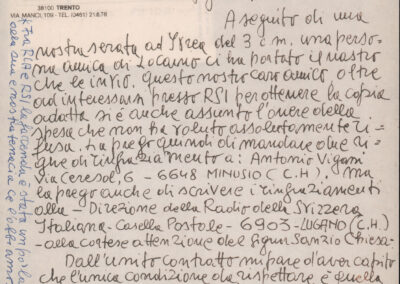 38100 TRENTO
VIA MANCI, 109 - TEL. (0461) 21878
A seguito di una
nostra serata ad Ivrea del 3 c.m. una perso-
na amica di Locarno ci ha portato il nastro
che le invio. Questo nostro caro amico, oltre
ad interessarsi presso RSI per ottenere la copia
adatta si è anche assunto l'onere della
spesa che non ha voluto assolutamente ri-
fusa. La prego quindi di mandare due ri-
ghe di ringraziamento a: Antonio Vigani
Via Ceresol, 6 - 6648 MINUSIO (C.H.), ma
la prego anche di scrivere i ringraziamenti
alla - Direzione della Radio della Svizzera
Italiana - Casella Postale - 6903 - LUGANO (C.H.)
- alla cortese attenzione del Signor Sanzio Chiesa -
Dall'unito contratto mi pare d'aver capito
che l'unica condizione da rispettare è quella
Tra RCH e RSI la faccenda è stata un po' la